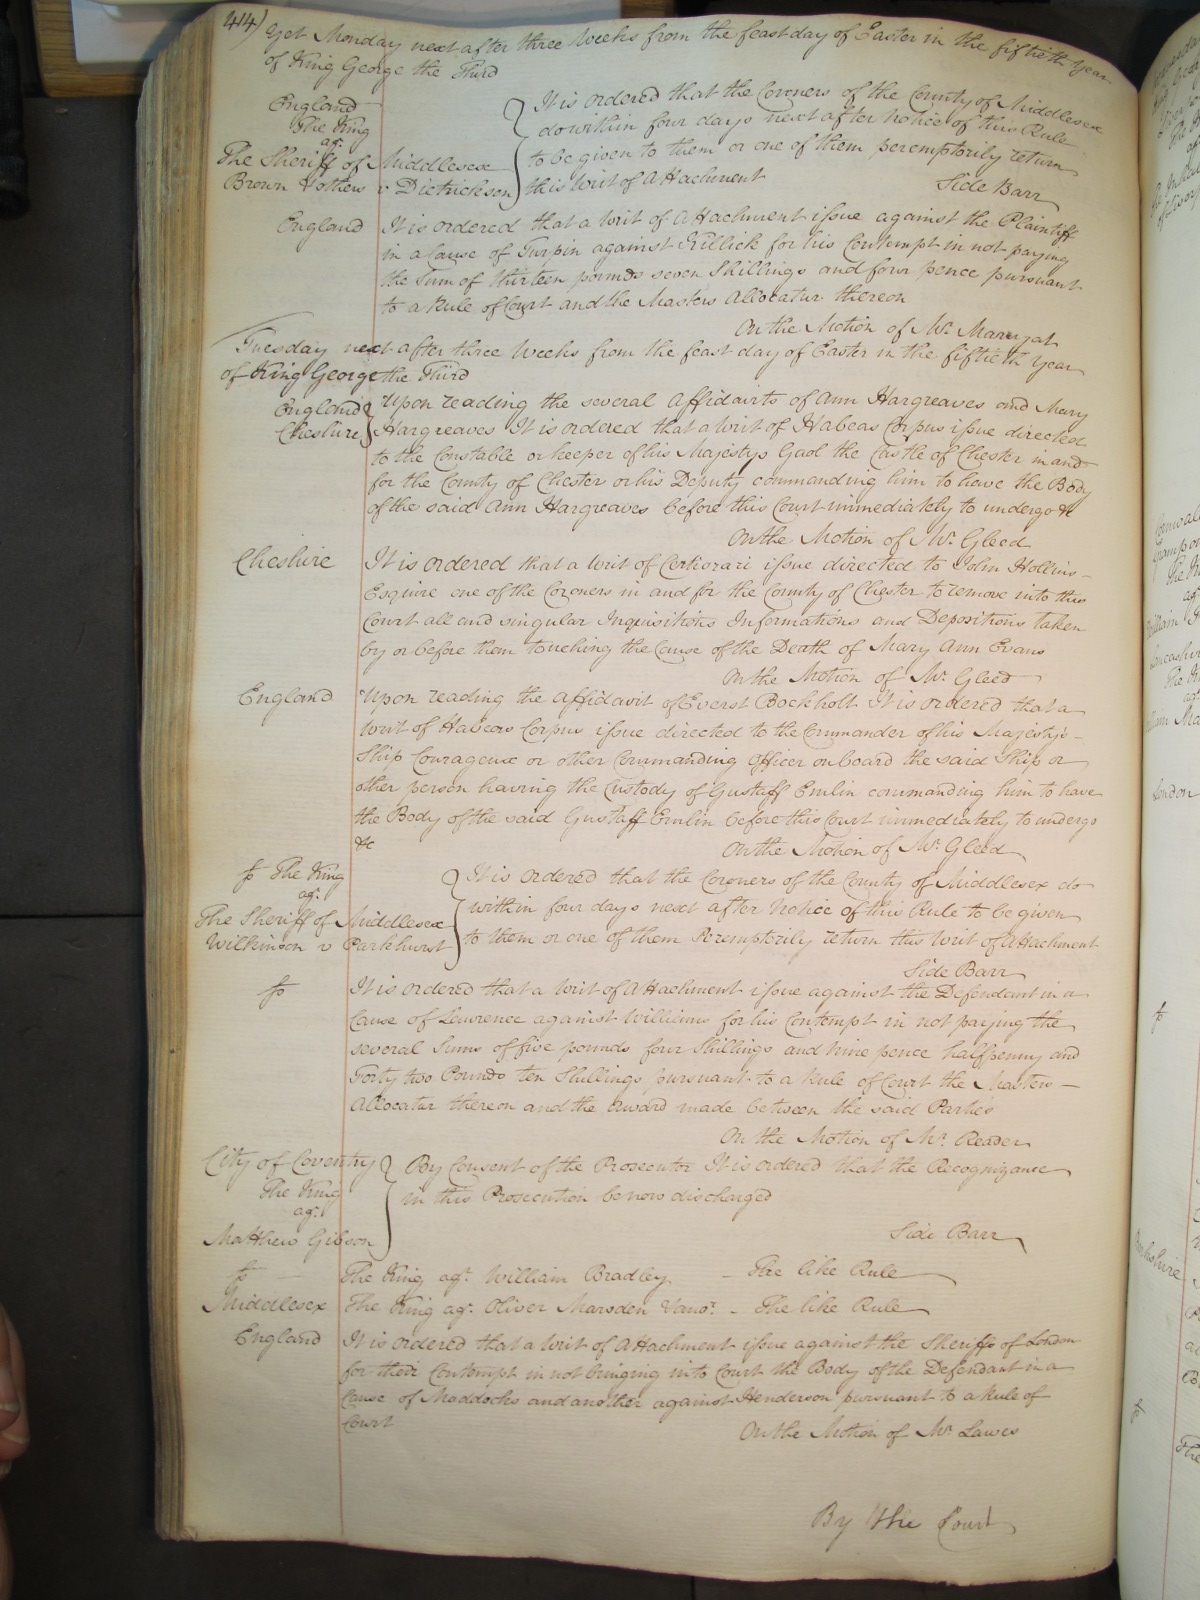 414) Yet Monday next after three Weeks from the feast day of Easter in the fiftieth year
of King George the Third
England
The King
agt.
The Sheriff of Middlesex
Brown & others v Dietrichson
It is ordered that the Coroners of the County of Middlesex
do within four days next after Notice of this Rule
to be given to them or one of them peremptorily return
this Writ of Attachment
Side Barr
England It is ordered that a Writ of Attachment issue against the Plaintiff
in a Cause of Turpin against Killick for his Contempt in not paying
the Sum of thirteen pounds seven Shillings and four pence pursuant
to a Rule of Court and the Masters Allocatur thereon
On the Motion of Mr. Marryat
Tuesday next after three Weeks from the feast day of Easter in the fiftieth Year
of King George the Third
England
Cheshire
Upon reading the several Affidavits of Ann Hargreaves and Mary
Hargreaves It is ordered that a Writ of Habeas Corpus issue directed
to the Constable or keeper of his Majestys Gaol the Castle of Chester in and
for the County of Chester or his Deputy commanding him to have the Body
of the said Ann Hargreaves before this Court immediately to undergo &c
On the Motion of Mr. Gleed
Cheshire It is ordered that a Writ of Certiorari issue directed to John Hollins
Esquire one of the Coroners in and for the County of Chester to remove into this
Court all and singular Inquisitions Informations and Depositions taken
by or before them touching the Cause of the Death of Mary Ann Evans
On the Motion of Mr. Gleed
England Upon reading the Affidavit of Everst Bockholt It is ordered that a
Writ of Habeas Corpus issue directed to the Commander of his Majesty's
Ship Courageux or other Commanding Officer on board the said Ship or
other person having the Custody of Gustaff Emlin commanding him to have
the Body of the said Gustaff Emlin before this Court immediately to undergo
&c
On the Motion of Mr. Gleed
fo The King
agt.
The Sheriff of Middlesex
Wilkinson v Parkhurst
It is ordered that the Coroners of the County of Middlesex do
within four days next after Notice of this Rule to be given
to them or one of them Peremptorily return this Writ of Attachment
Side Barr
fo It is ordered that a Writ of Attachment issue against the Defendant in a
Cause of Lawrence against Williams for his Contempt in not paying the
several Sums of five pounds four Shillings and nine pence halfpenny and
Forty two Pounds ten Shillings pursuant to a Rule of Court the Masters
Allocatur thereon and the Award made between the said Parties
On the Motion of Mr. Reader
City of Coventry
The King
agt.
Matthew Gibson
By Consent of the Prosecutor It is ordered that the Recognizance
in this Prosecution be now discharged
Side Barr
fo The King agt. William Bradley - The like Rule
Middlesex The King agt. Oliver Marsden - The like Rule
England It is ordered that a Writ of Attachment issue against the Sheriffs of London
for their Contempt in not bringing into Court the Body of the Defendant in a
Cause of Maddocks and another against Henderson pursuant to a Rule of
Court
On the Motion of Mr. Lawes
By the Court
London
fo